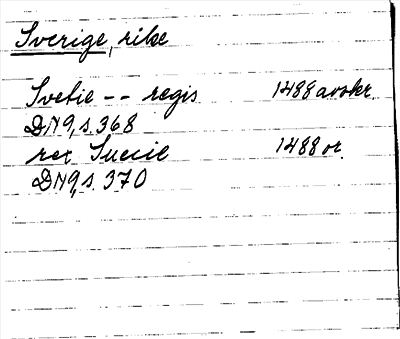 Sverige, rike
Svetie -- regis 1488 avskr.
DN9, s. 368
rex Suecie 1488 or.
DN9, s. 370